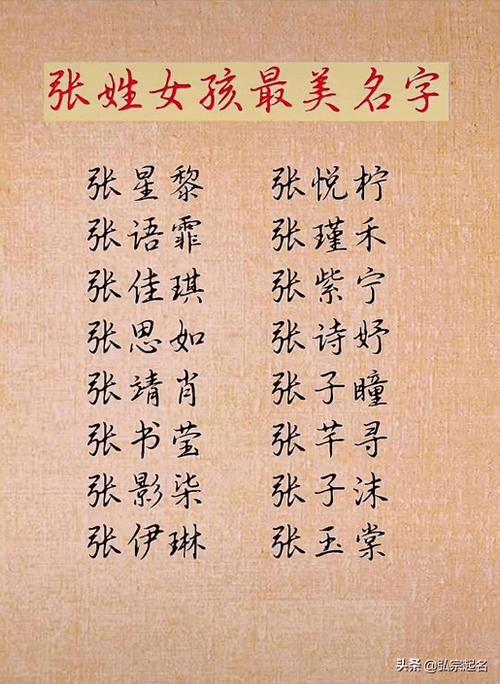 张姓女孩最美名字
张星黎 张悦柠
张语霏 张瑾禾
张佳琪 张紫宁
张思如 张诗妤
张靖肖 张子瞳
张书莹 张芊寻
张影柒 张子沫
张伊琳 张玉棠
头条 @弘宗起名